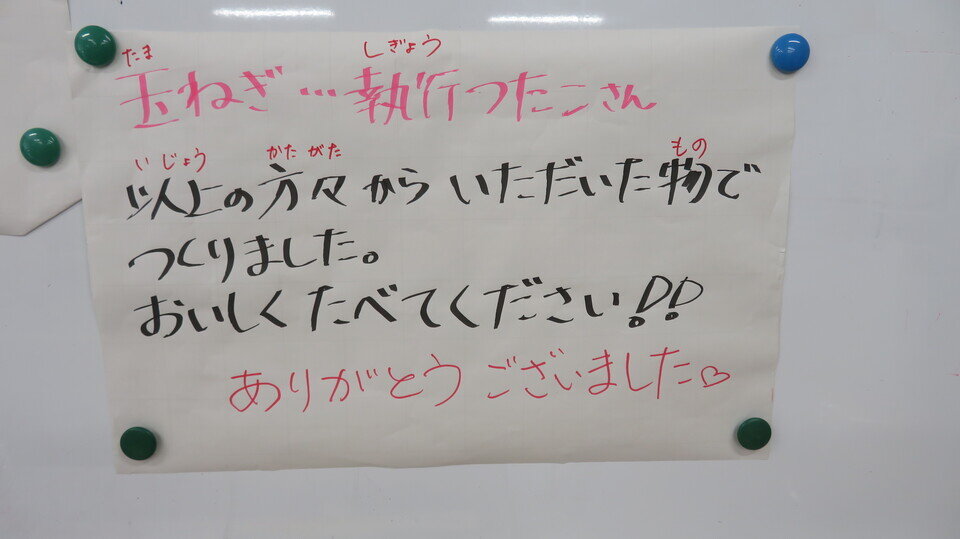 たま しぎょう
玉ねぎ…執行つたこさん
いじょう かたがた もの
以上の方々からいただいた物で
つくりました。
おいしくたべてください!!
ありがとうございました♡